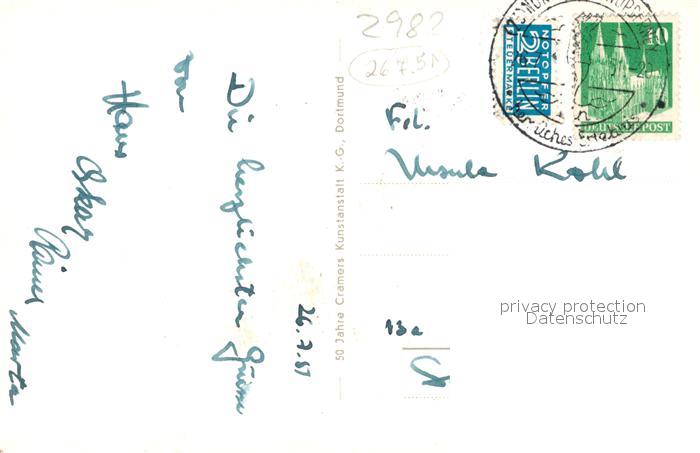 Die herzlichsten Grüsse
von
Hans
Oskar
Marta
26.7.51
50 Jahre Cramers Kunstanstalt K.-G., Dortmund
2982
26.7.51
NOTOPFER
2 BERLIN
STEUERMARKE
10
DEUTSCHE POST
Frl.
Ursula Kohl
13a
privacy protection
Datenschutz